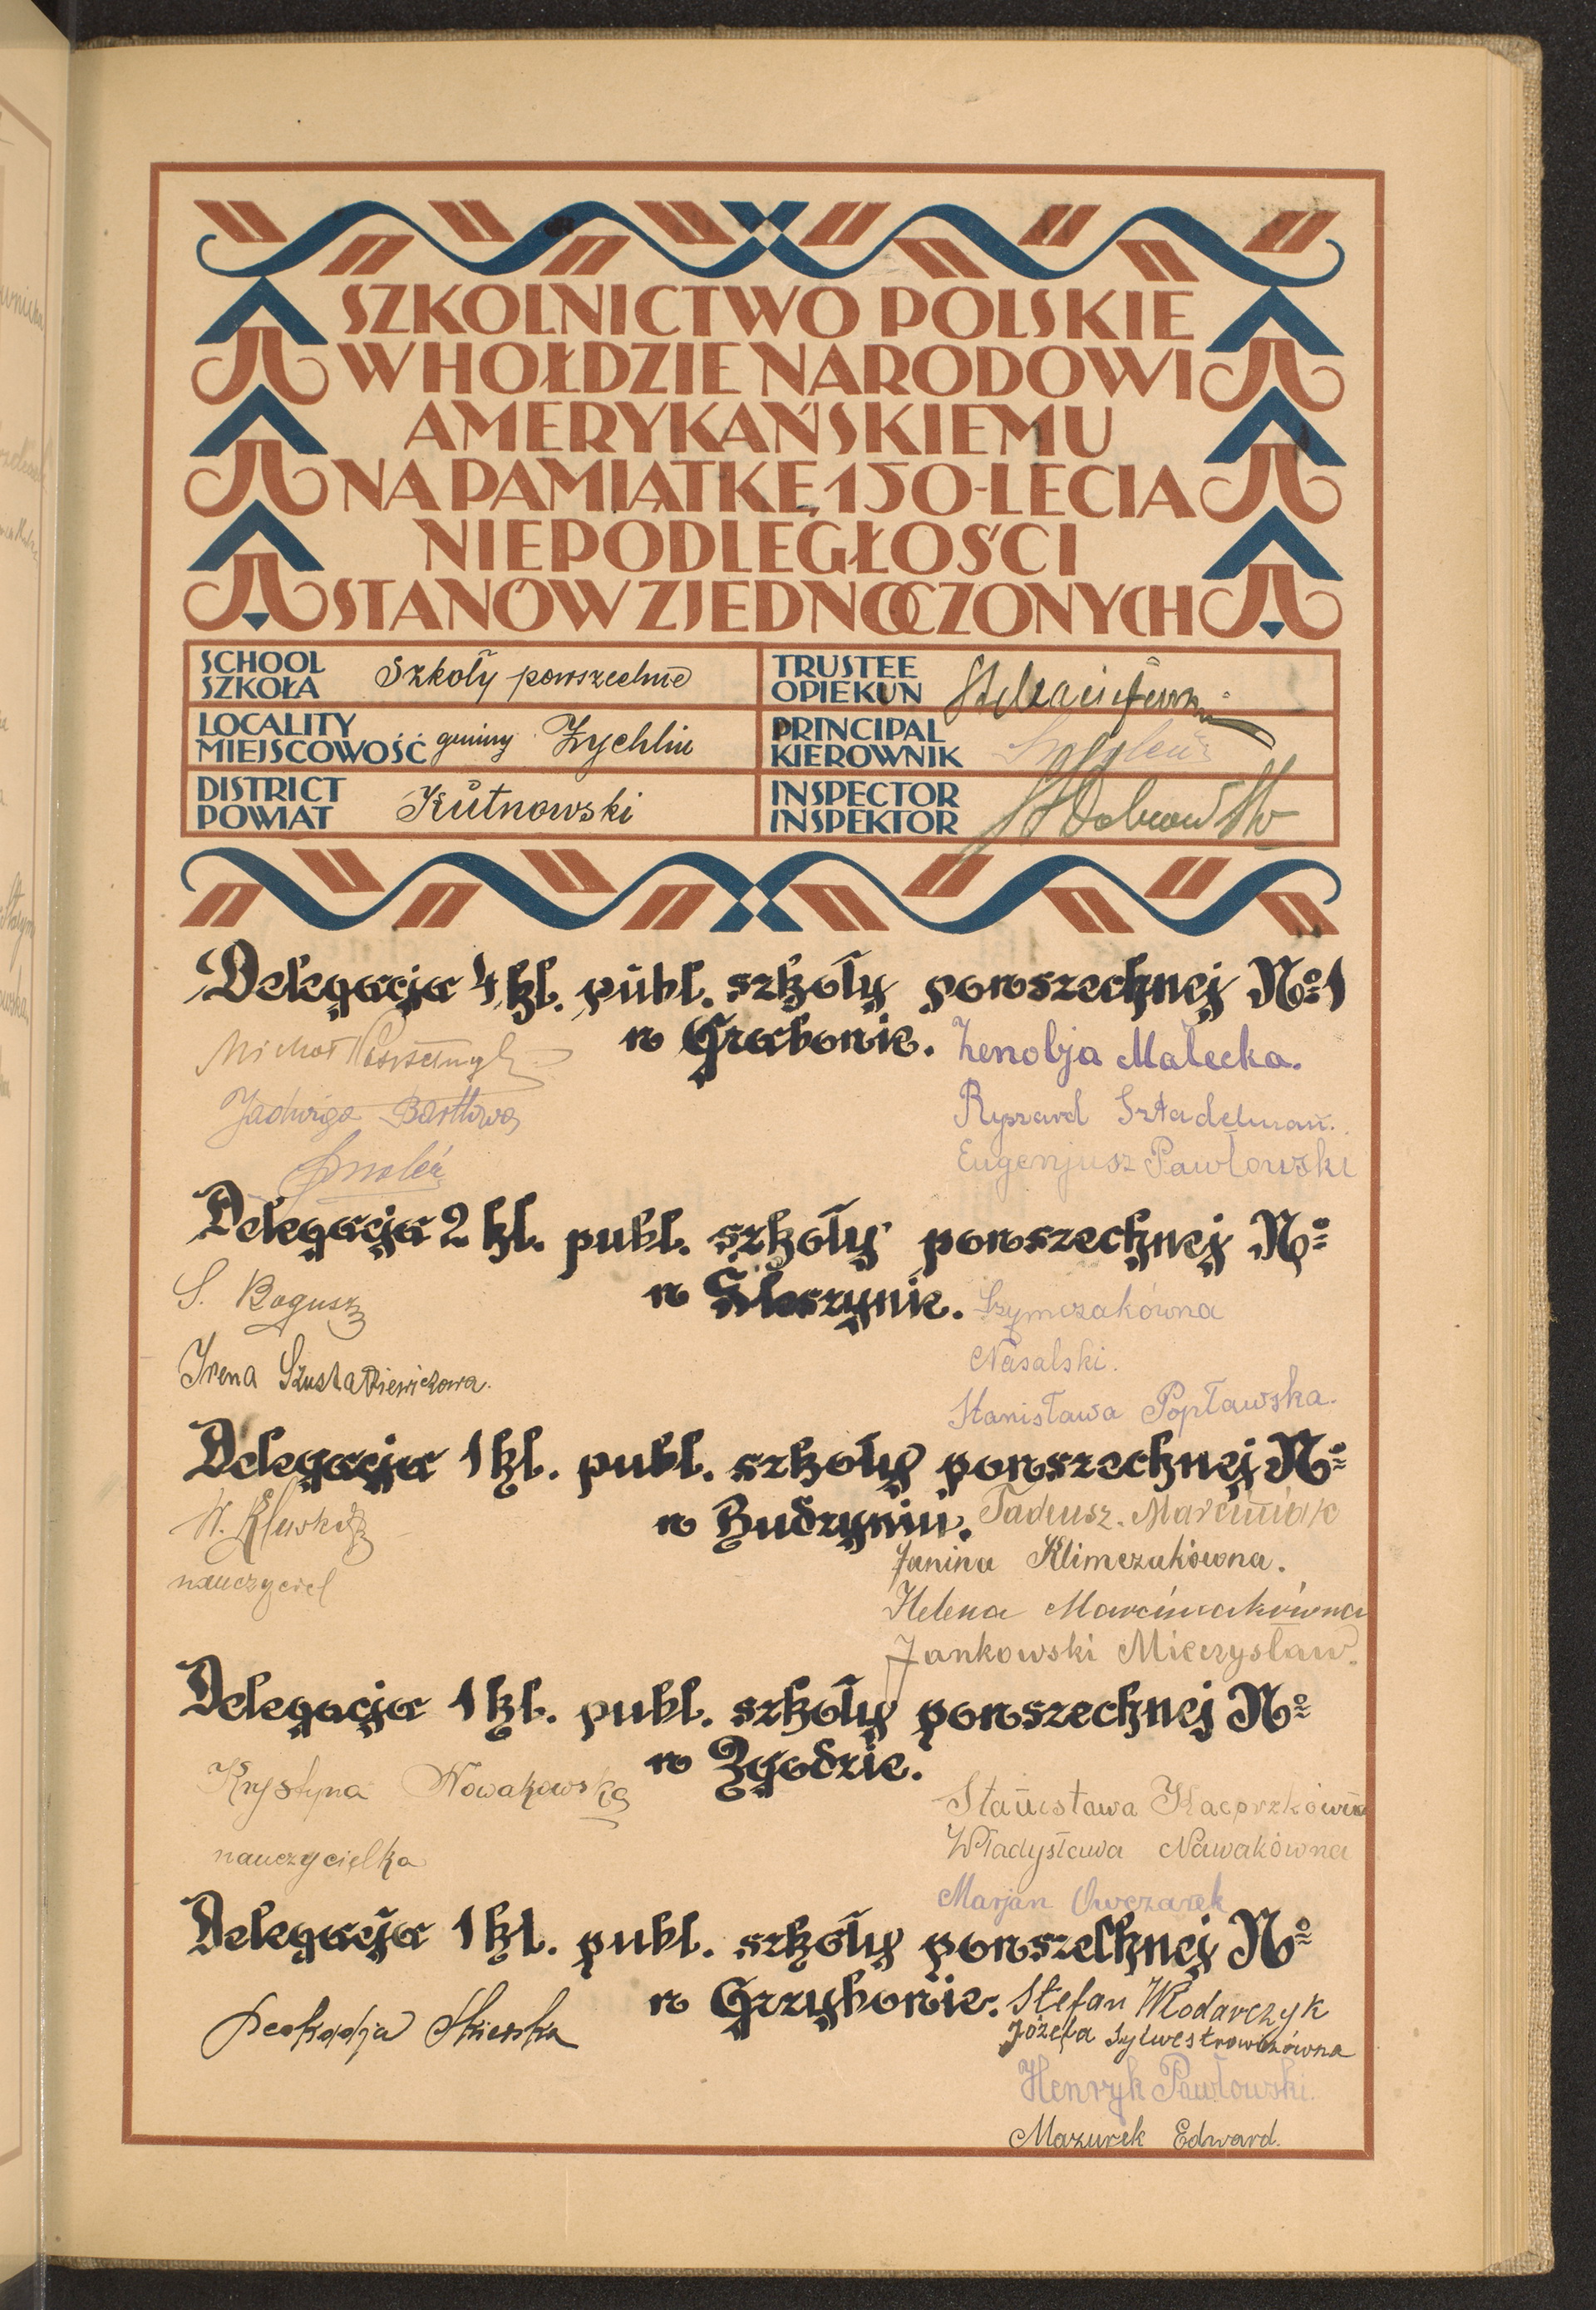 SZKOLNICTWO POLSKIE
W HOŁDZIE NARODOWI
AMERYKAŃSKIEMU
NA PAMIĄTKĘ 150-LECIA
NIEPODLEGŁOŚCI
STANÓW ZJEDNOCZONYCH
SCHOOL
SZKOŁA Szkoły powszechne
TRUSTEE
OPIEKUN
LOCALITY
MIEJSCOWOŚĆ gminy Żychlin
PRINCIPAL
KIEROWNIK
DISTRICT
POWIAT Kutnowski
INSPECTOR
INSPEKTOR
Delegacja 4 kl. publ. szkoły powszechnej No 1
w Grabowie.
Michał
Jadwiga
Smoleń
Zenobja Małecka.
Ryszard Sztadelman.
Eugenjusz Pawłowski
Delegacja 2 kl. publ. szkoły powszechnej No
w Śleszynie.
S. Bogusz
Irena Szustakiewiczowa.
Szymczakówna
Nasalski.
Stanisława Popławska.
Delegacja 1 kl. publ. szkoły powszechnej No
w Budzyniu.
W.
nauczyciel
Tadeusz. Marciniak
Janina Klimczakówna.
Helena Marciniakówna
Jankowski Mieczysław.
Delegacja 1 kl. publ. szkoły powszechnej No
w Zgodzie.
Krystyna Nowakowska
nauczycielka
Stanisława Kacprzkówna
Władysława Nawakówna
Marjan Owczarek
Delegacja 1 kl. publ. szkoły powszechnej No
w Grzybowie.
Stefan Włodarczyk
Józefa Sylwestrowiczówna
Henryk Pawłowski.
Mazurek Edward.